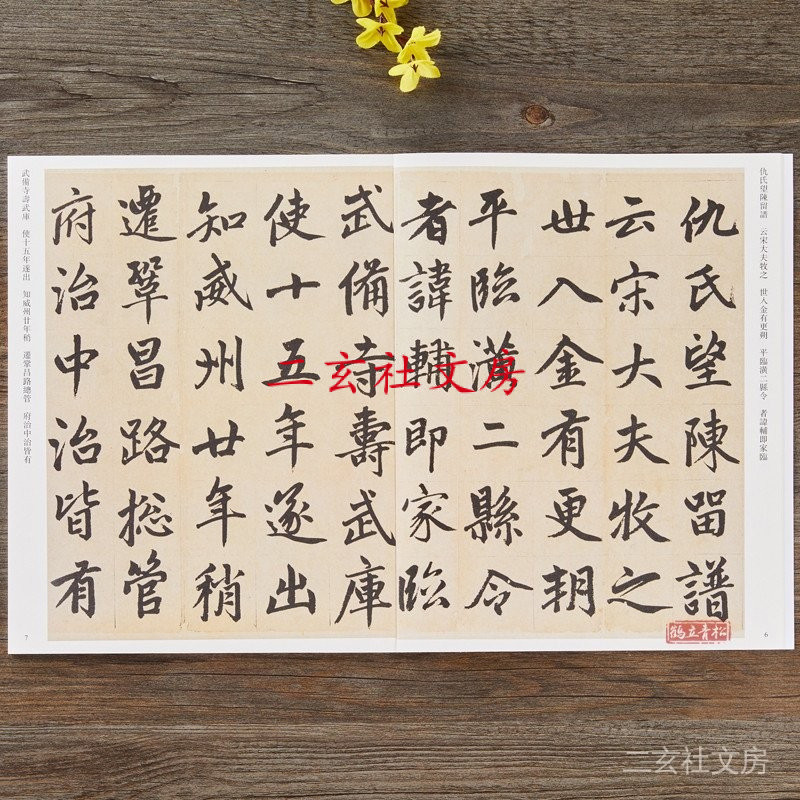 仇氏望陳留譜 云宋大夫牧之 世入金有更朔 平臨潢二縣令 者諱輔即家臨
仇氏望陳留譜
云宋大夫牧之
世入金有更朔
平臨潢二縣令
者諱輔即家臨
武備寺壽武庫
使十五年遂出
知威州廿年稍
遷鞏昌路揔管
府治中治皆有
武備寺壽武庫 使十五年遂出 知威州廿年稍 遷鞏昌路總管 府治中治皆有
6
7
鶴立青松
二玄社文房
二玄社文房